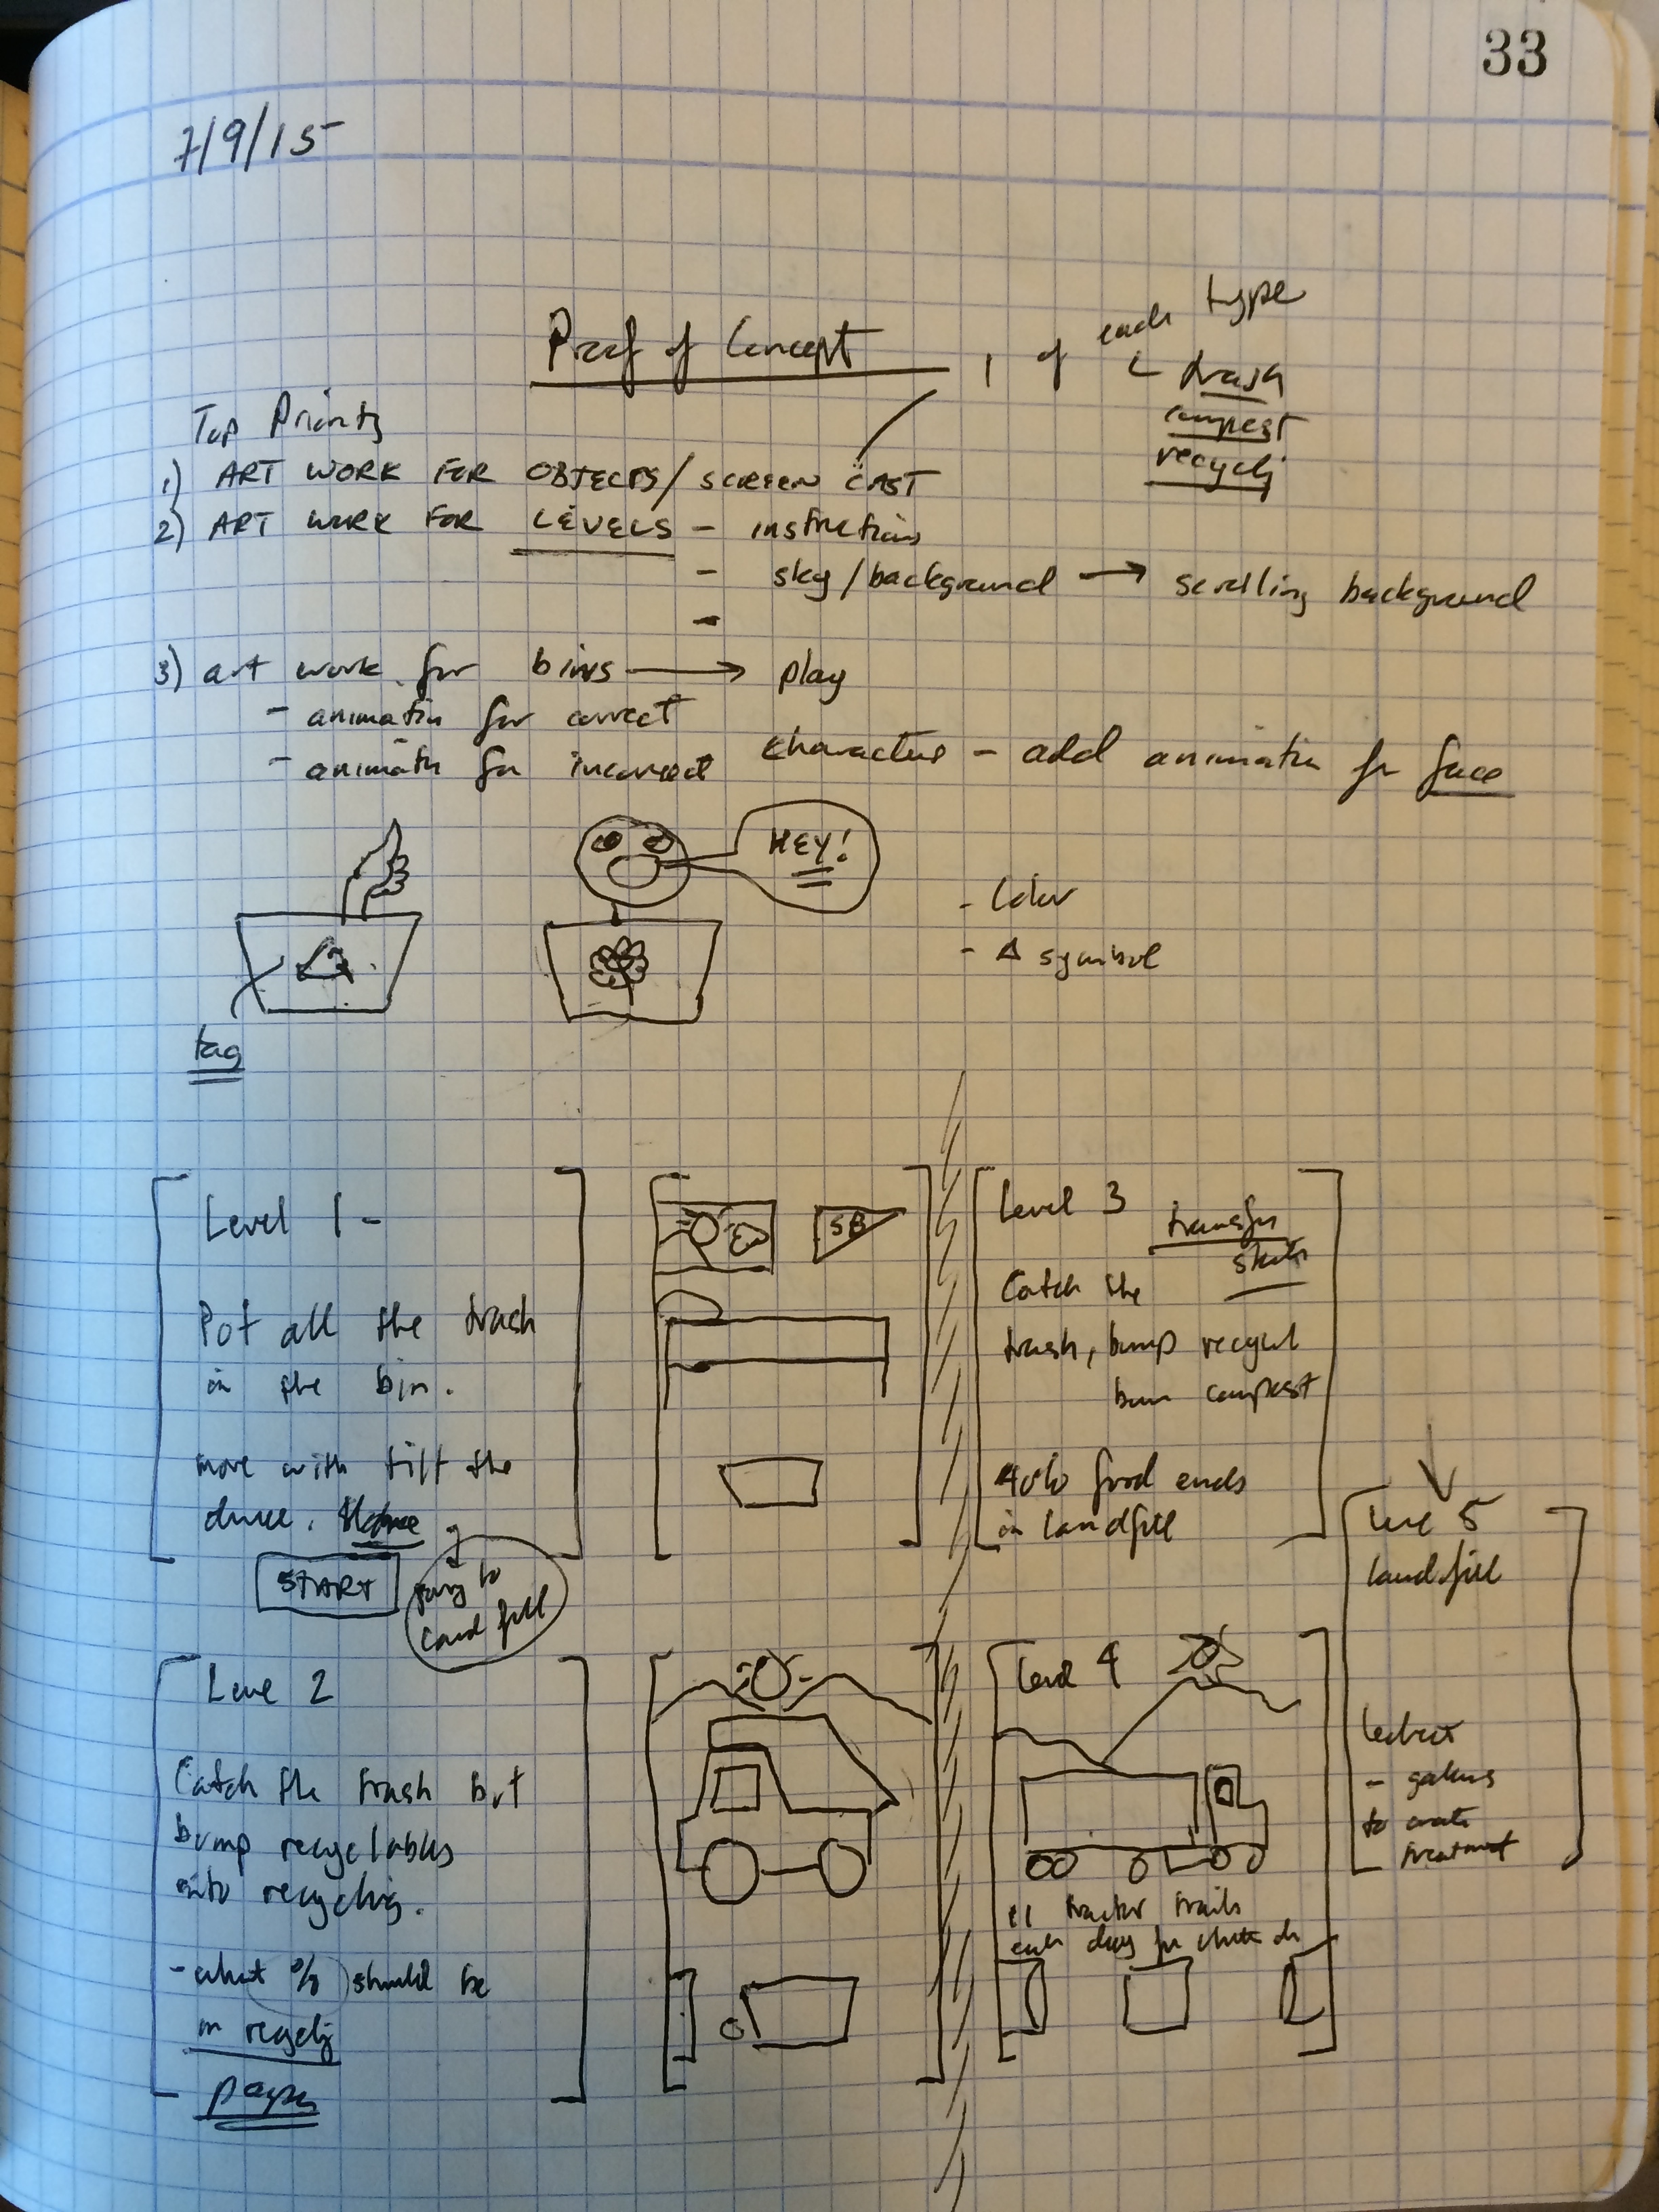 33
7/9/15
Proof of Concept
1 of each type
trash
compost
recyclj
Top Priority
1) ART WORK FOR OBJECTS/SCREEN CAST
2) ART WORK FOR LEVELS - instructions
- sky/background → scrolling background
-
3) art work for bins → play
- animation for correct
- animation for incorrect
characters - add animation for face
HEY!
- Color
- Δ symbol
tag
Level 1 -
Pot all the trash
in the bin.
move with tilt the
START
going to
land fill
SB
Level 3
transfer
Catch the
trash, bump recycl
bum compost
40% food ends
in landfill
Level 2
Catch the trash but
bump recyclables
into recycling.
- what % should be
in recyclj
paper
Level 4
11 tractor trails
each day for
Leve 5
landfill
- gallons
to
treatment